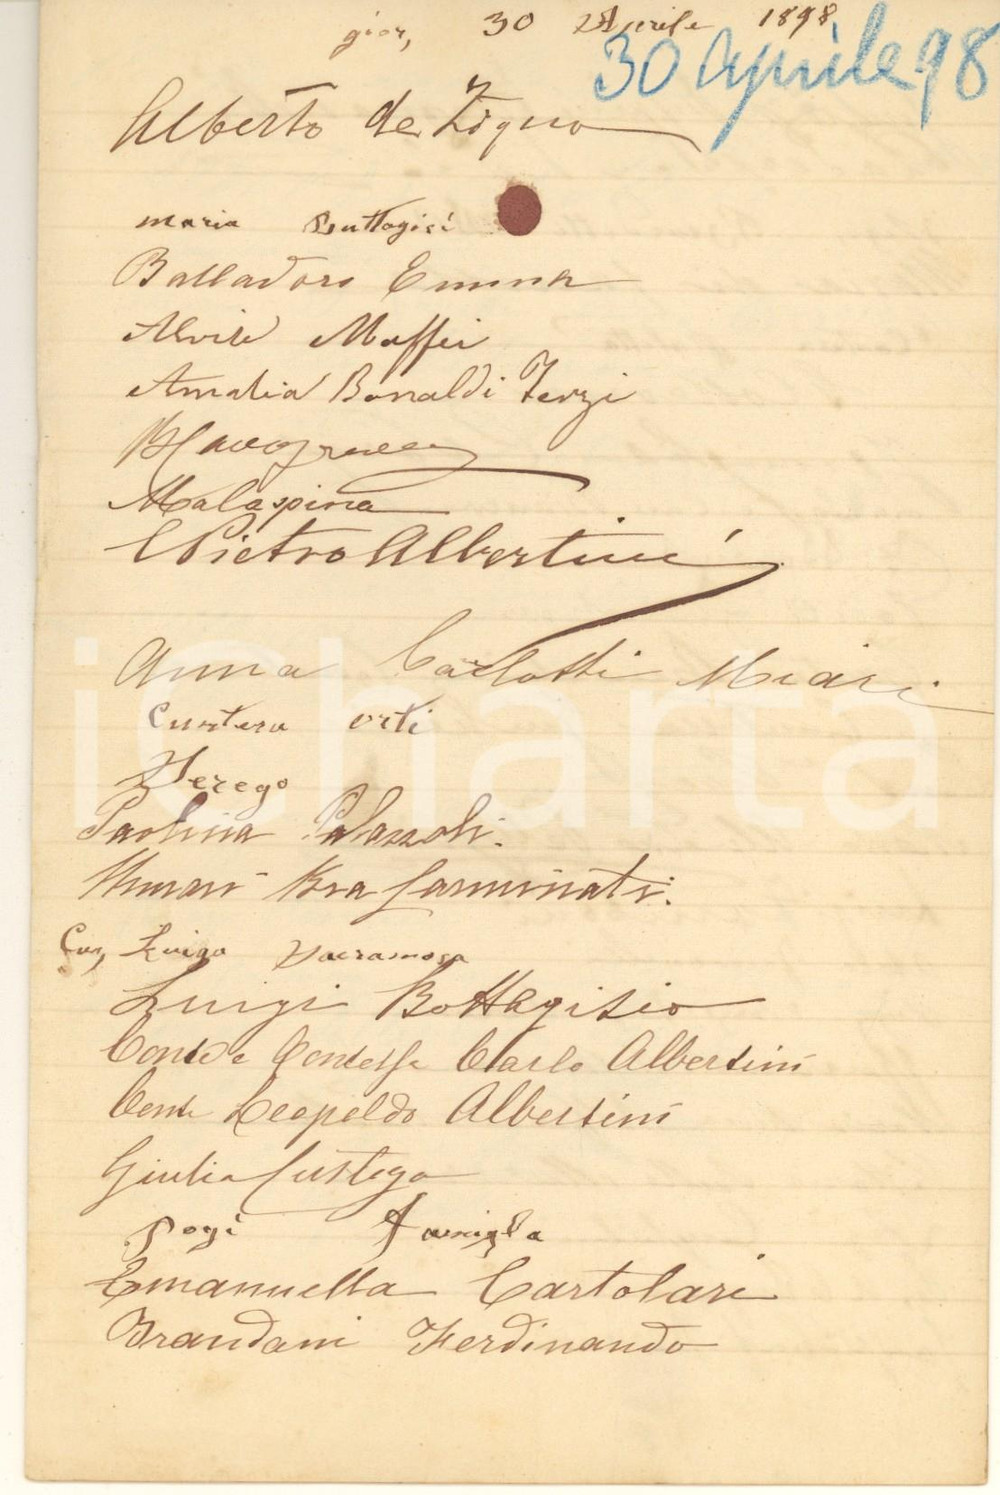 gior, 30 Aprile 1898
30 aprile 98
Alberto de Zigno
maria Buttagisi
Balladoro Emma
Alvise Maffei
Amalia Bonaldi Terzi
Malaspina
Pietro Albertini
Anna Carlotti Miari
orti
Serego
Paolina Palazzoli.
Murari Bra
Luiga Sacramosa
Luigi Bottagisio
Conte e Contessa Carlo Albertini
Conte Leopoldo Albertini
Giulia Custoza
pogi famiglia
Emanuella Cartolari
Brandani Ferdinando
iCharta